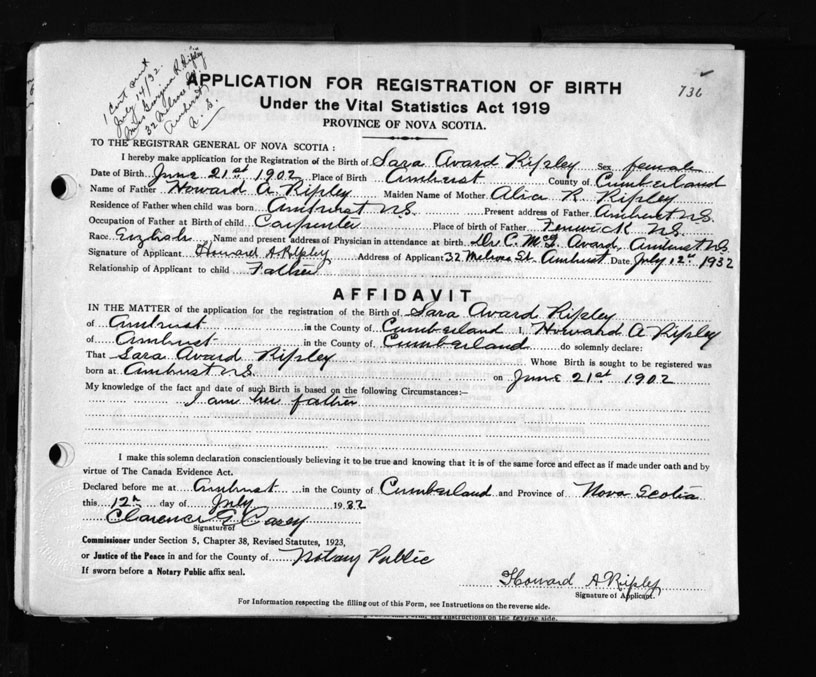 1 Cert sent
July 14/32.
Miss Georgina R. Ripley
32 Melrose St
Amherst
N. S.
736
APPLICATION FOR REGISTRATION OF BIRTH
Under the Vital Statistics Act 1919
PROVINCE OF NOVA SCOTIA.
TO THE REGISTRAR GENERAL OF NOVA SCOTIA :
I hereby make application for the Registration of the Birth of Sara Avard Ripley Sex female
Date of Birth June 21st 1902 Place of Birth Amherst County of Cumberland
Name of Father Howard A. Ripley Maiden Name of Mother Alice R. Ripley
Residence of Father when child was born Amherst N.S. Present address of Father Amherst N.S.
Occupation of Father at Birth of child Carpenter Place of birth of Father Fenwick N.S.
Race English Name and present address of Physician in attendance at birth Dr. C. McQ. Avard, Amherst N.S.
Signature of Applicant Howard A Ripley Address of Applicant 32 Melrose St. Amherst Date July 12th 1932
Relationship of Applicant to child Father
AFFIDAVIT
IN THE MATTER of the application for the registration of the Birth of Sara Avard Ripley
of Amherst in the County of Cumberland I, Howard A Ripley
of Amherst in the County of Cumberland do solemnly declare:
That Sara Avard Ripley Whose Birth is sought to be registered was
born at Amherst N.S. on June 21st 1902
My knowledge of the fact and date of such Birth is based on the following Circumstances:—
I am her father
I make this solemn declaration conscientiously believing it to be true and knowing that it is of the same force and effect as if made under oath and by
virtue of The Canada Evidence Act.
Declared before me at Amherst in the County of Cumberland and Province of Nova Scotia
this 12th day of July 1932
Clarence G Casey
Signature of
Commissioner under Section 5, Chapter 38, Revised Statutes, 1923,
or Justice of the Peace in and for the County of Notary Public
If sworn before a Notary Public affix seal.
Howard A Ripley
Signature of Applicant.
For Information respecting the filling out of this Form, see Instructions on the reverse side.